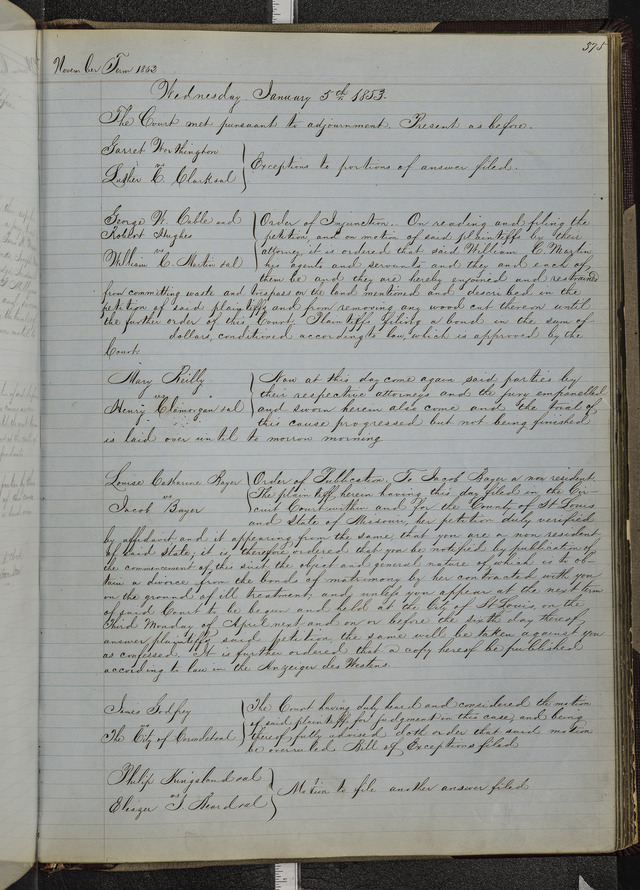 375
November Term 1852
Wednesday January 5th 1853.
The Court met pursuant to adjournment. Present as before.
Garret Worthington
vs
Luther C. Clark et al
Exceptions to portions of answer filed.
George W. Cable and
Robert Hughes
vs
William C. Martin et al
Order of Injunction. On reading and filing the
petition, and on motion of said plaintiffs by their
attorney, it is ordered that said William C. Martin
his agents and servants and they and each of
them be and they are hereby enjoined and restrained
from committing waste and trespass on the land mentioned and described in the
petition of said plaintiffs, and from removing any wood cut thereon until
the further order of this Court, Plaintiffs filing a bond in the sum of
dollars, conditioned according to law, which is approved by the
Court.
Mary Reilly
vs
Henry Clamorgan et al
Now at this day come again said parties by
their respective attorneys and the jury empanelled
and sworn herein also come and the trial of
this cause progressed but not being finished
is laid over until to morrow morning
Louise Catharine Bayer
vs
Jacob Bayer
Order of Publication. To Jacob Bayer a non resident.
The plaintiff herein having this day filed in the Cir-
cuit Court within and for the County of St Louis
and State of Missouri, her petition duly verified
by affidavit and it appearing from the same that you are a non resident
of said State, it is, therefore, ordered that you be notified by publication of
the commencement of this suit, the object and general nature of which is to ob-
tain a divorce from the bonds of matrimony by her contracted with you
on the ground of ill treatment, and unless you appear at the next term
of said Court to be begun and held at the City of St Louis, on the
third Monday of April next and on or before the sixth day thereof
answer plaintiffs said petition, the same will be taken against you
as confessed. It is further ordered that a copy hereof be published
according to law in the Anzeiger des Westens
James Godfrey
vs
The City of Carondelet
The Court having duly heard and considered the motion
of said plaintiff for judgment in this case, and being
thereof fully advised doth order that said motion
be overruled. Bill of Exceptions filed
Philip Kingsland et al
vs
Eleazer T. Beard et al
Motion to file another answer filed